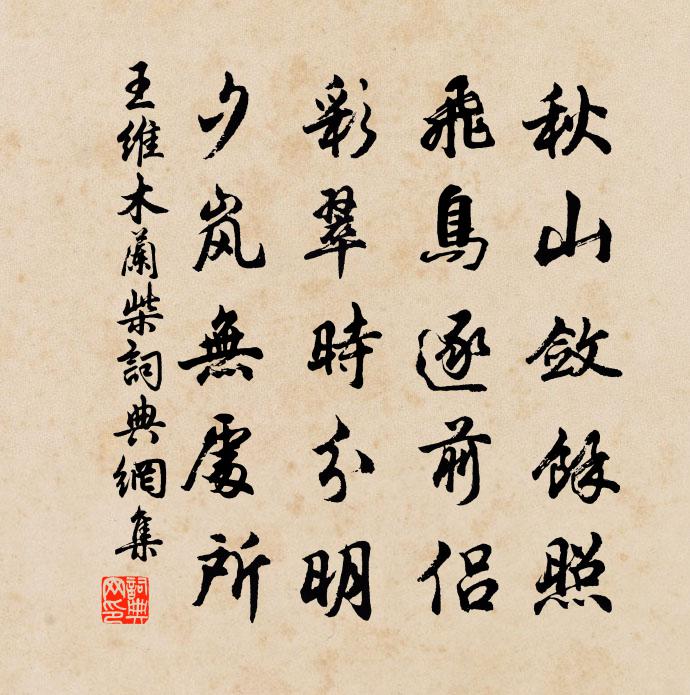 秋山斂餘照
飛鳥逐前侶
彩翠時分明
夕岚無處所
王維木蘭柴詞典網集
詞典
网印